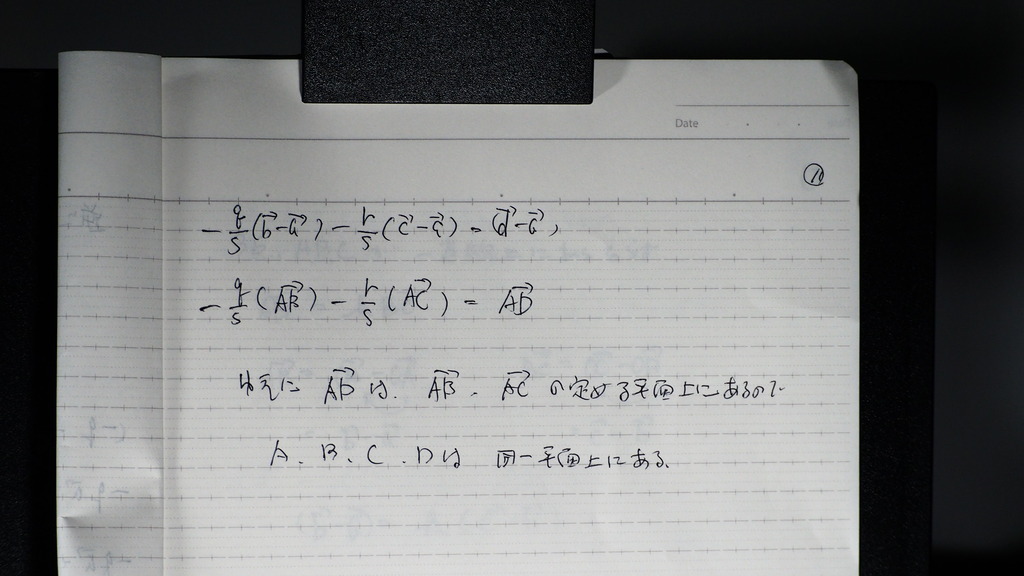 Date
⑪
-q/s(b→-a→)-r/s(c→-a→)=d→-a→,
-q/s(AB→)-r/s(AC→)=AD→
故に AD→は、AB→、AC→の定める平面上にあるので
A、B、C、Dは 同一平面上にある。